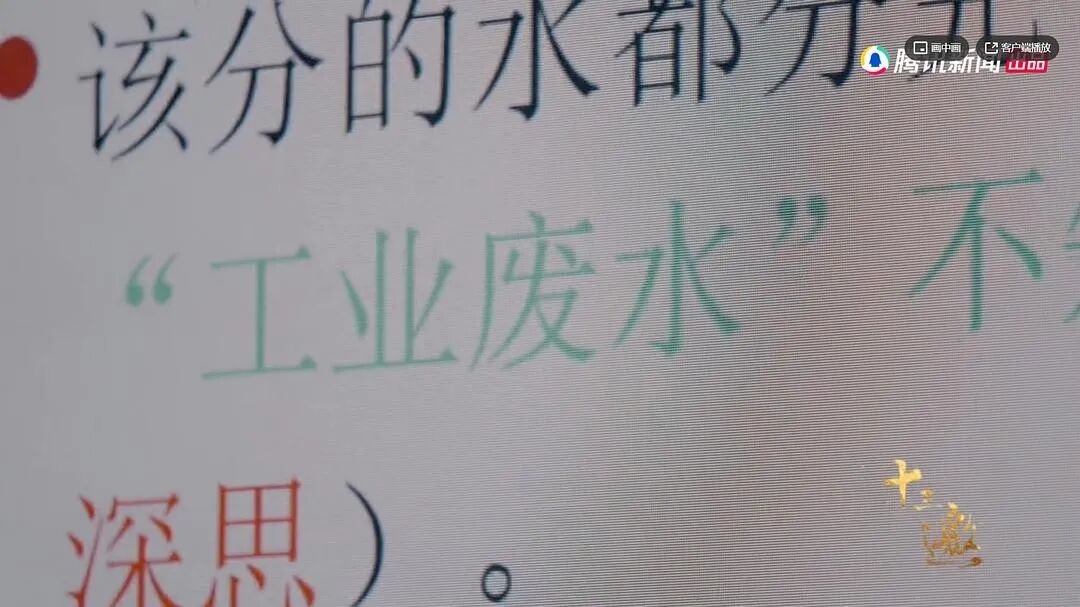 画中画 客户端播放
腾讯新闻 出品
该分的水都分
“工业废水”不
深思）。
十三邀